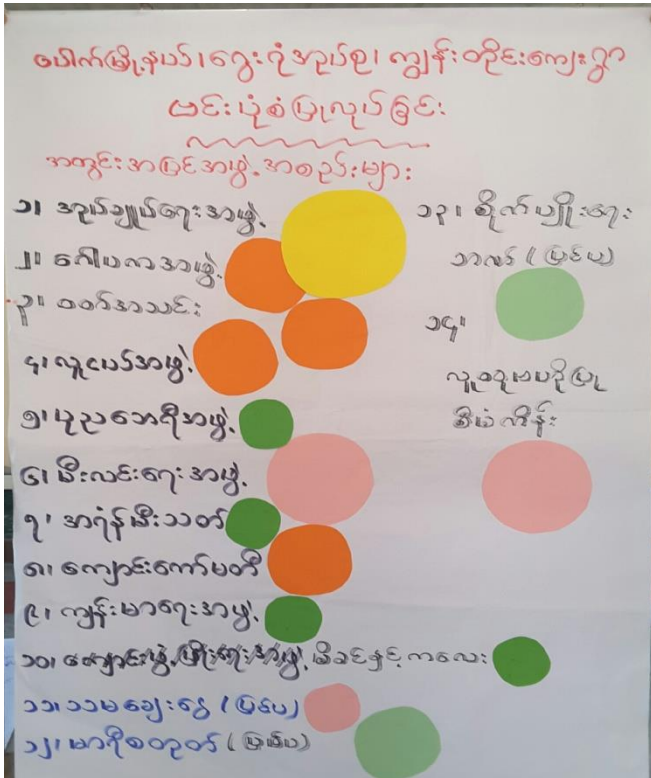 ပေါက်မြို့နယ်၊ ရွေးရုံအုပ်စု၊ ကျွန်းတိုင်းကျေးရွာ
ဗင်းပုံစံပြုလုပ်ခြင်း
အတွင်းအပြင်အဖွဲ့အစည်းများ
၁၊ အုပ်ချုပ်ရေးအဖွဲ့
၂၊ ဂေါပကအဖွဲ့
၃၊ ဝတ်အသင်း
၄၊ လူငယ်အဖွဲ့
၅၊ ပုညဘေရီအဖွဲ့
၆၊ မီးလင်းရေးအဖွဲ့
၇၊ အရံမီးသတ်
၈၊ ကျောင်းကော်မတီ
၉၊ ကျန်းမာရေးအဖွဲ့
၁၀၊ မိခင်နှင့်ကလေး
၁၁၊ သမချေးငွေ (ပြင်ပ)
၁၂၊ မာရီစတုတ် (ပြင်ပ)
၁၃၊ စိုက်ပျိုးရေး
ဘဏ် (ပြင်ပ)
၁၄၊
လူထုဗဟိုပြု
စီမံကိန်း